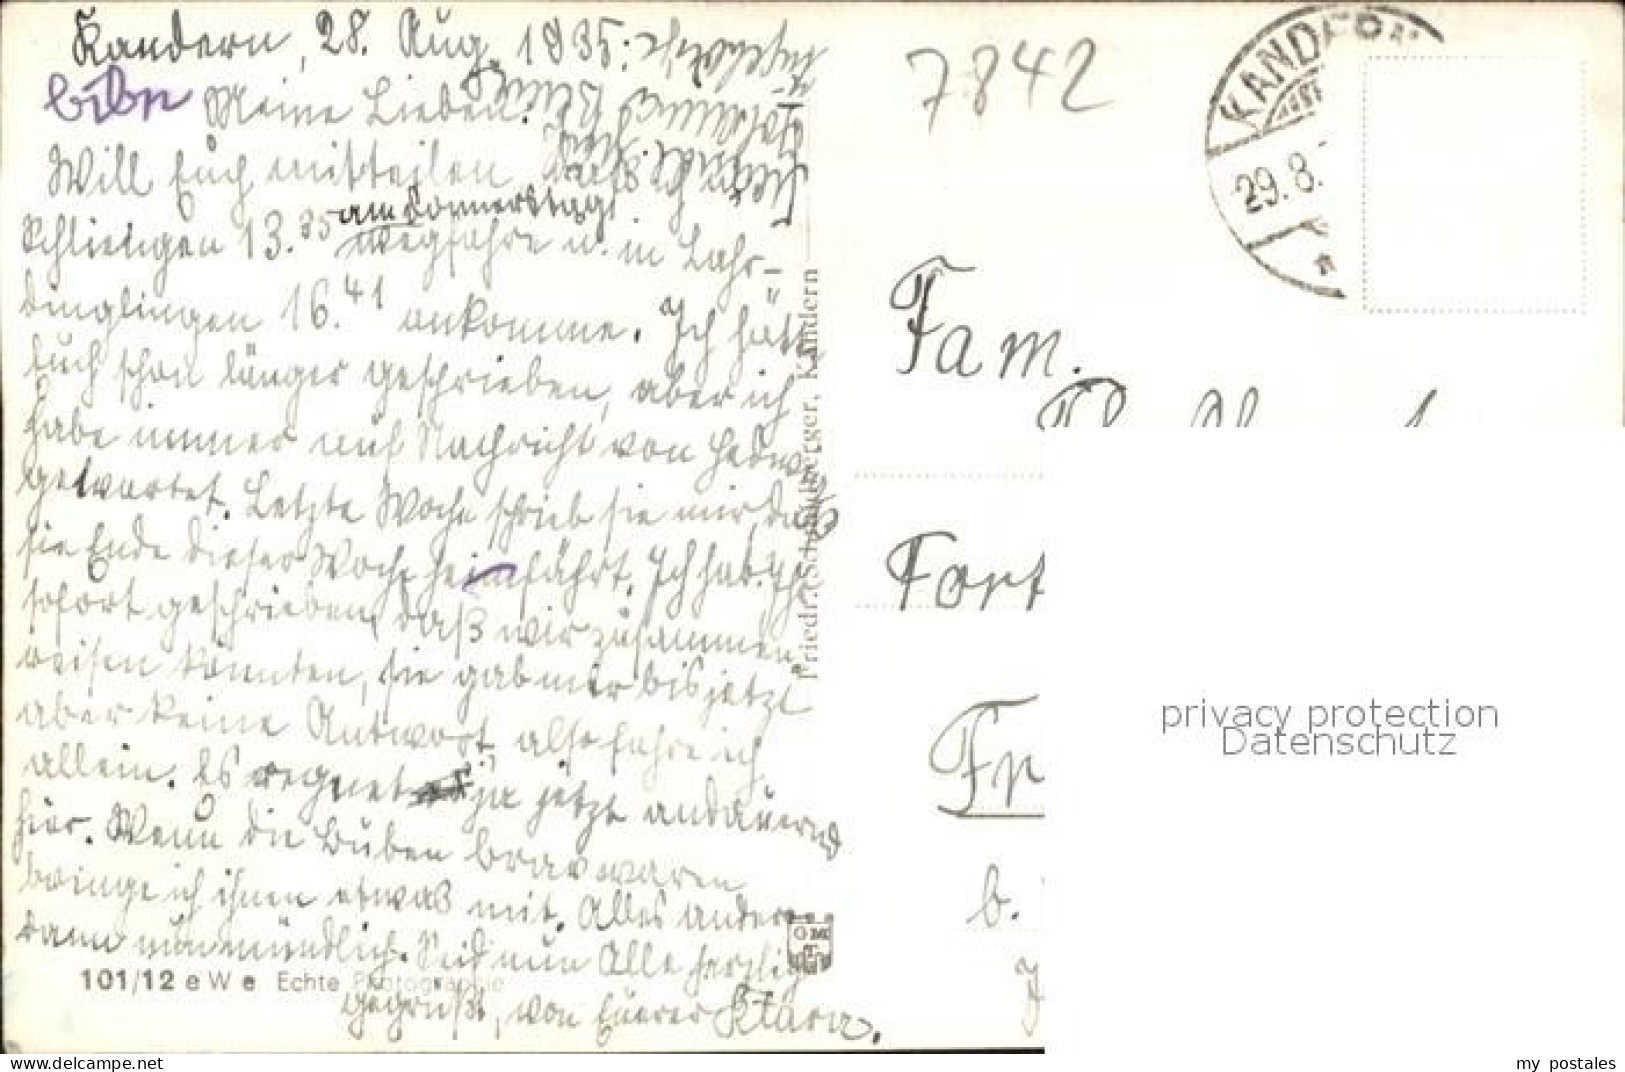 Kandern, 28. Aug. 1935.
Meine Lieben!
Will Euch mitteilen daß ich
Schliengen 13.35 am Donnerstag
wegfahre u. in Lahr-
dinglingen 16.41 ankomme. Ich hätte
Euch schon länger geschrieben, aber ich
habe immer auf Nachricht von Hedwig
gewartet. Letzte Woche schrieb sie mir, daß
sie Ende dieser Woche heimfährt. Ich hab ihr
sofort geschrieben, daß wir zusammen
reisen könnten, sie gab mir bis jetzt
aber keine Antwort, also fahre ich
allein. Es regnet ja jetzt andauernd
hier. Wenn die Buben brav waren
bringe ich ihnen etwas mit. Alles andere
dann nun mündlich. Seid nun Alle herzlich
gegrüßt, von Eurer Klara.
101/12 e W e Echte Photographie
Kandern
7842
KANDERN
29.8.
Fam.
b.
privacy protection
Datenschutz
my postales